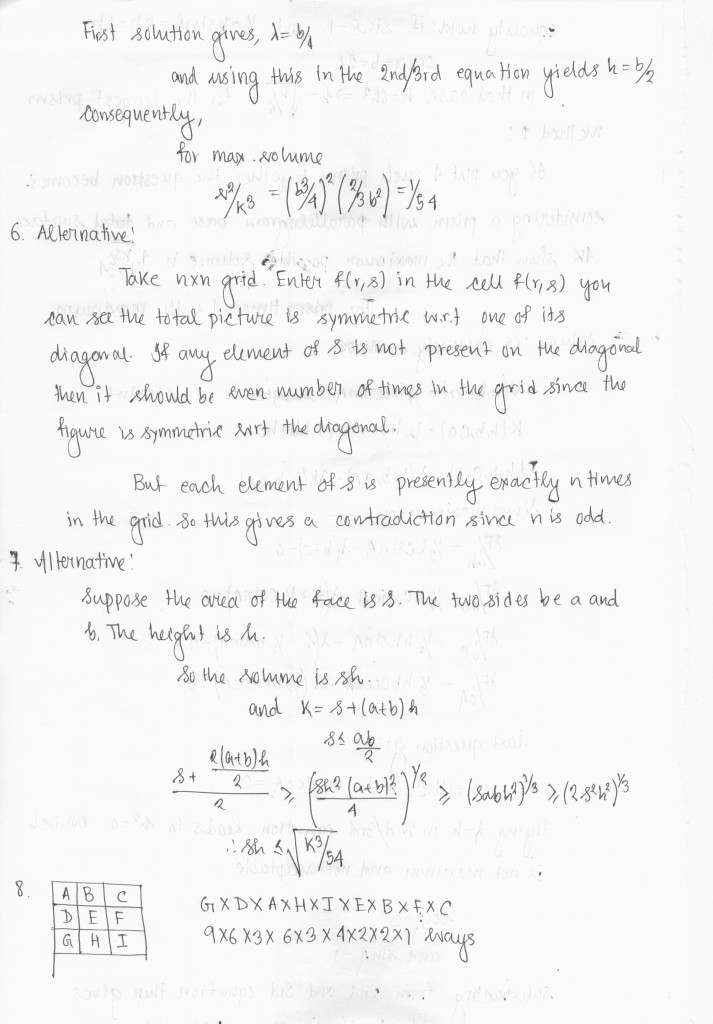 First solution gives, λ = b/4
and using this in the 2nd/3rd equation yields h = b/2
Consequently,
for max. volume
v²/k³ = (b³/4)² (2/3b²) = 1/54
6. Alternative:
Take nxn grid. Enter f(r,s) in the cell f(r,s) you
can see the total picture is symmetric w.r.t one of its
diagonal. If any element of S is not present on the diagonal
then it should be even number of times in the grid since the
figure is symmetric wrt the diagonal.
But each element of S is presently exactly n times
in the grid. So this gives a contradiction since n is odd.
7. Alternative:
Suppose the area of the face is S. The two sides be a and
b. The height is h.
So the volume is sh.
and K = S + (a+b)h
S ≤ ab/2
(S + 2(a+b)h/2)/2 ≥ (Sh² (a+b)²/4)^1/2 ≥ (Sabh²)^1/3 ≥ (2S²h²)^1/3
∴ Sh ≤ √K³/54
8.
A B C
D E F
G H I
G X D X A X H X I X E X B X F X C
9 X 6 X 3 X 6 X 3 X 4 X 2 X 2 X 1 ways